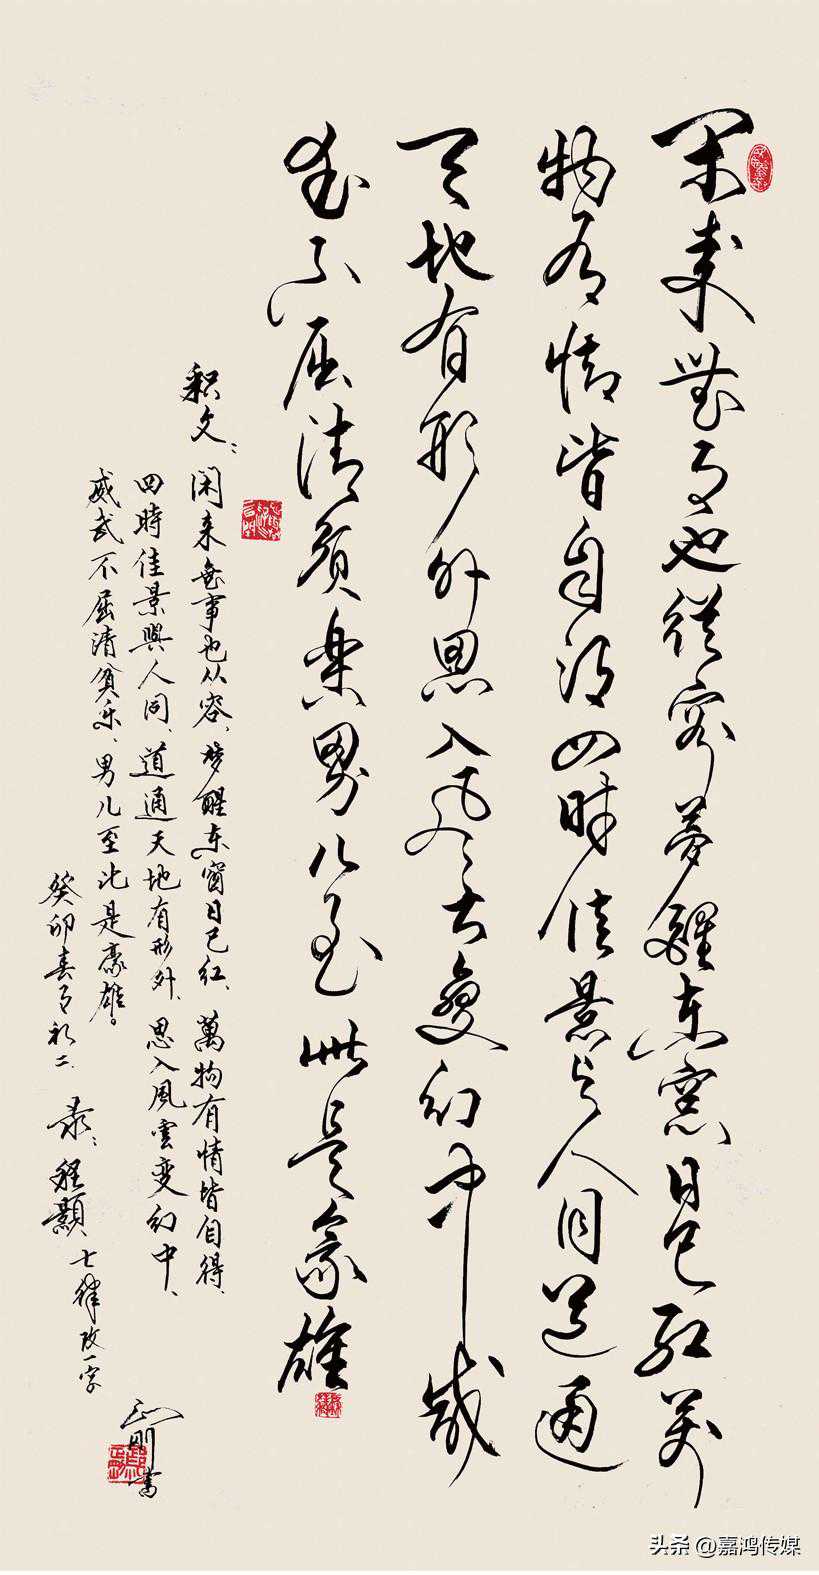 闲来無事也從容夢醒東窓日已红万
物有情皆自得四時佳景与人同道通
天地有形外思入风云变幻中威
武不屈清贫楽男儿至此是豪雄
釈文：
闲来無事也从容，梦醒东窗日已红、萬物有情皆自得、
四時佳景與人同、道通天地有形外、思入風雲变幻中、
威武不屈清貧乐、男儿至此是豪雄。
癸卯春月初二、录：程顥、七律改一字
头条 @嘉鸿传媒